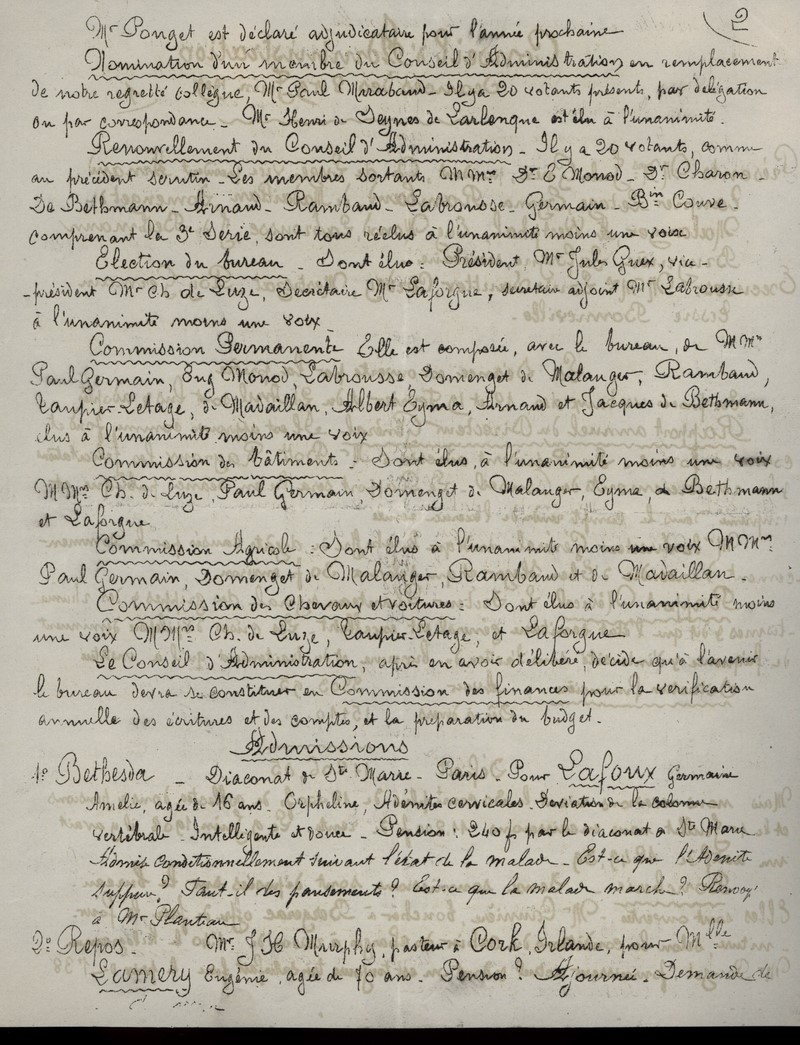 2
Mr Pouget est déclaré adjudicataire pour l'année prochaine
Nomination d'un membre du Conseil d'Administration en remplacement
de notre regretté collègue, Mr Paul Maraband. Il y a 20 votants présents, par délégation
ou par correspondance. Mr Henri de Seynes de Larlenque est élu à l'unanimité.
Renouvellement du Conseil d'Administration. Il y a 20 votants, comme
au précédent scrutin. Les membres sortants MMrs Dr E Monod. Dr Charon.
De Bethmann. Arnaud. Rambaud. Labrousse. Germain. Bin Couve.
comprenant la 3e Serie, sont tous réélus à l'unanimité moins une voix
Election du bureau. Sont élus: Président Mr Jules Guex, vice-
-président Mr Ch de Luze, Secrétaire Mr Laforgue, secretaire adjoint Mr Labrousse
à l'unanimité moins une voix.
Commission Permanente Elle est composée, avec le bureau, de MMrs
Paul Germain, Eug Monod, Labrousse, Domenget de Malanger, Rambaud,
Taupier-Letage, de Madaillan, Albert Eyma, Arnaud et Jacques de Bethmann,
élus à l'unanimité moins une voix
Commission des bâtiments. Sont élus, à l'unanimité moins une voix
MMrs Ch. de Luze, Paul Germain, Domenget de Malanger, Eyma, de Bethmann
et Laforgue.
Commission Agricole: Sont élus à l'unanimité moins une voix MMrs
Paul Germain, Domenget de Malanger, Rambaud et de Madaillan.
Commission des Chevaux et voitures: Sont élus à l'unanimité moins
une voix MMrs Ch. de Luze, Taupier-Letage, et Laforgue
Le Conseil d'Administration, après en avoir délibéré, décide qu'à l'avenir
le bureau devra se constituer en Commission des finances pour la verification
annuelle des écritures et des comptes, et la préparation du budget.
Admissions
1o Bethesda _ Diaconat de Ste Marie. Paris. Pour Lafoux Germaine
Amelie, agée de 16 ans. Orpheline, Adénites cervicales. Deviation de la colonne
vertébrale. Intelligente et douce. Pension: 240 f par le diaconat de Ste Marie
Admise conditionnellement suivant l'état de la malade. Est-ce que l'Adenite
suppure? Faut-il des pansements? Est-ce que la malade marche? Renvoyé
à Mr Planteau
2o Repos. Mr J H Murphy, pasteur à Cork, Irlande, pour Mlle
Lamery Eugénie, agée de 70 ans. Pension? Ajournée. Demande de